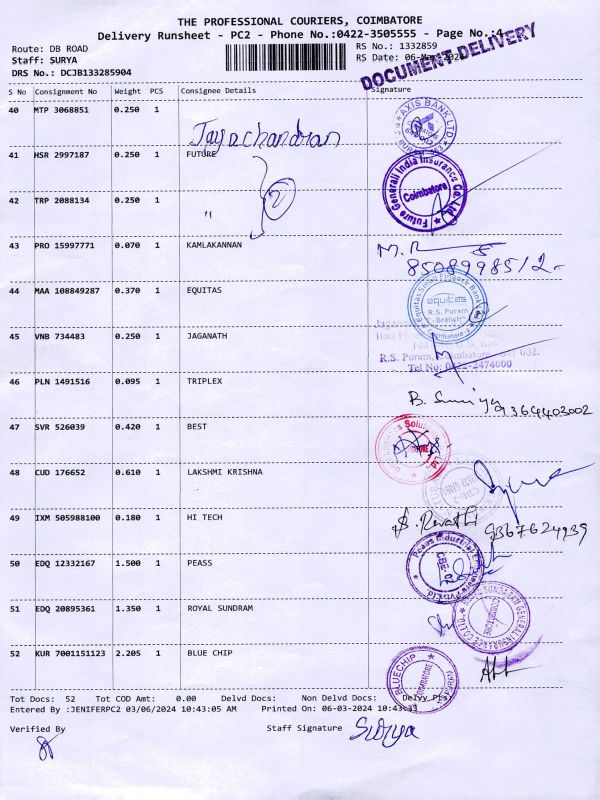 THE PROFESSIONAL COURIERS, COIMBATORE
Delivery Runsheet - PC2 - Phone No.:0422-3505555 - Page No.:4
Route: DB ROAD
RS No.: 1332859
Staff: SURYA
RS Date: 06-Mar-2024
DRS No.: DCJB133285904
DOCUMENT DELIVERY
S No Consignment No Weight PCS Consignee Details Signature
40 MTP 3068851 0.250 1
Jayachandran
AXIS BANK LTD
41 HSR 2997187 0.250 1 FUTURE
Future Generali India Insurance Co. Ltd.
Coimbatore
42 TRP 2088134 0.250 1 "
43 PRO 15997771 0.070 1 KAMLAKANNAN
8508998512
44 MAA 108849287 0.370 1 EQUITAS
Equitas Small Finance Bank
equitas
R.S. Puram
Branch
Coimbatore-2
45 VNB 734483 0.250 1 JAGANATH
R.S. Puram, Coimbatore - 641 002.
Tel No: 0422-2474000
46 PLN 1491516 0.095 1 TRIPLEX
9364403002
47 SVR 526039 0.420 1 BEST
48 CUD 176652 0.610 1 LAKSHMI KRISHNA
49 IXM 505988100 0.180 1 HI TECH
S. Revathi 9367624939
50 EDQ 12332167 1.500 1 PEASS
51 EDQ 20895361 1.350 1 ROYAL SUNDRAM
52 KUR 7001151123 2.205 1 BLUE CHIP
BLUECHIP
COIMBATORE
Tot Docs: 52 Tot COD Amt: 0.00 Delvd Docs: Non Delvd Docs: Delvy Pts:
Entered By :JENIFERPC2 03/06/2024 10:43:05 AM Printed On: 06-03-2024 10:43:31
Verified By
Staff Signature Surya